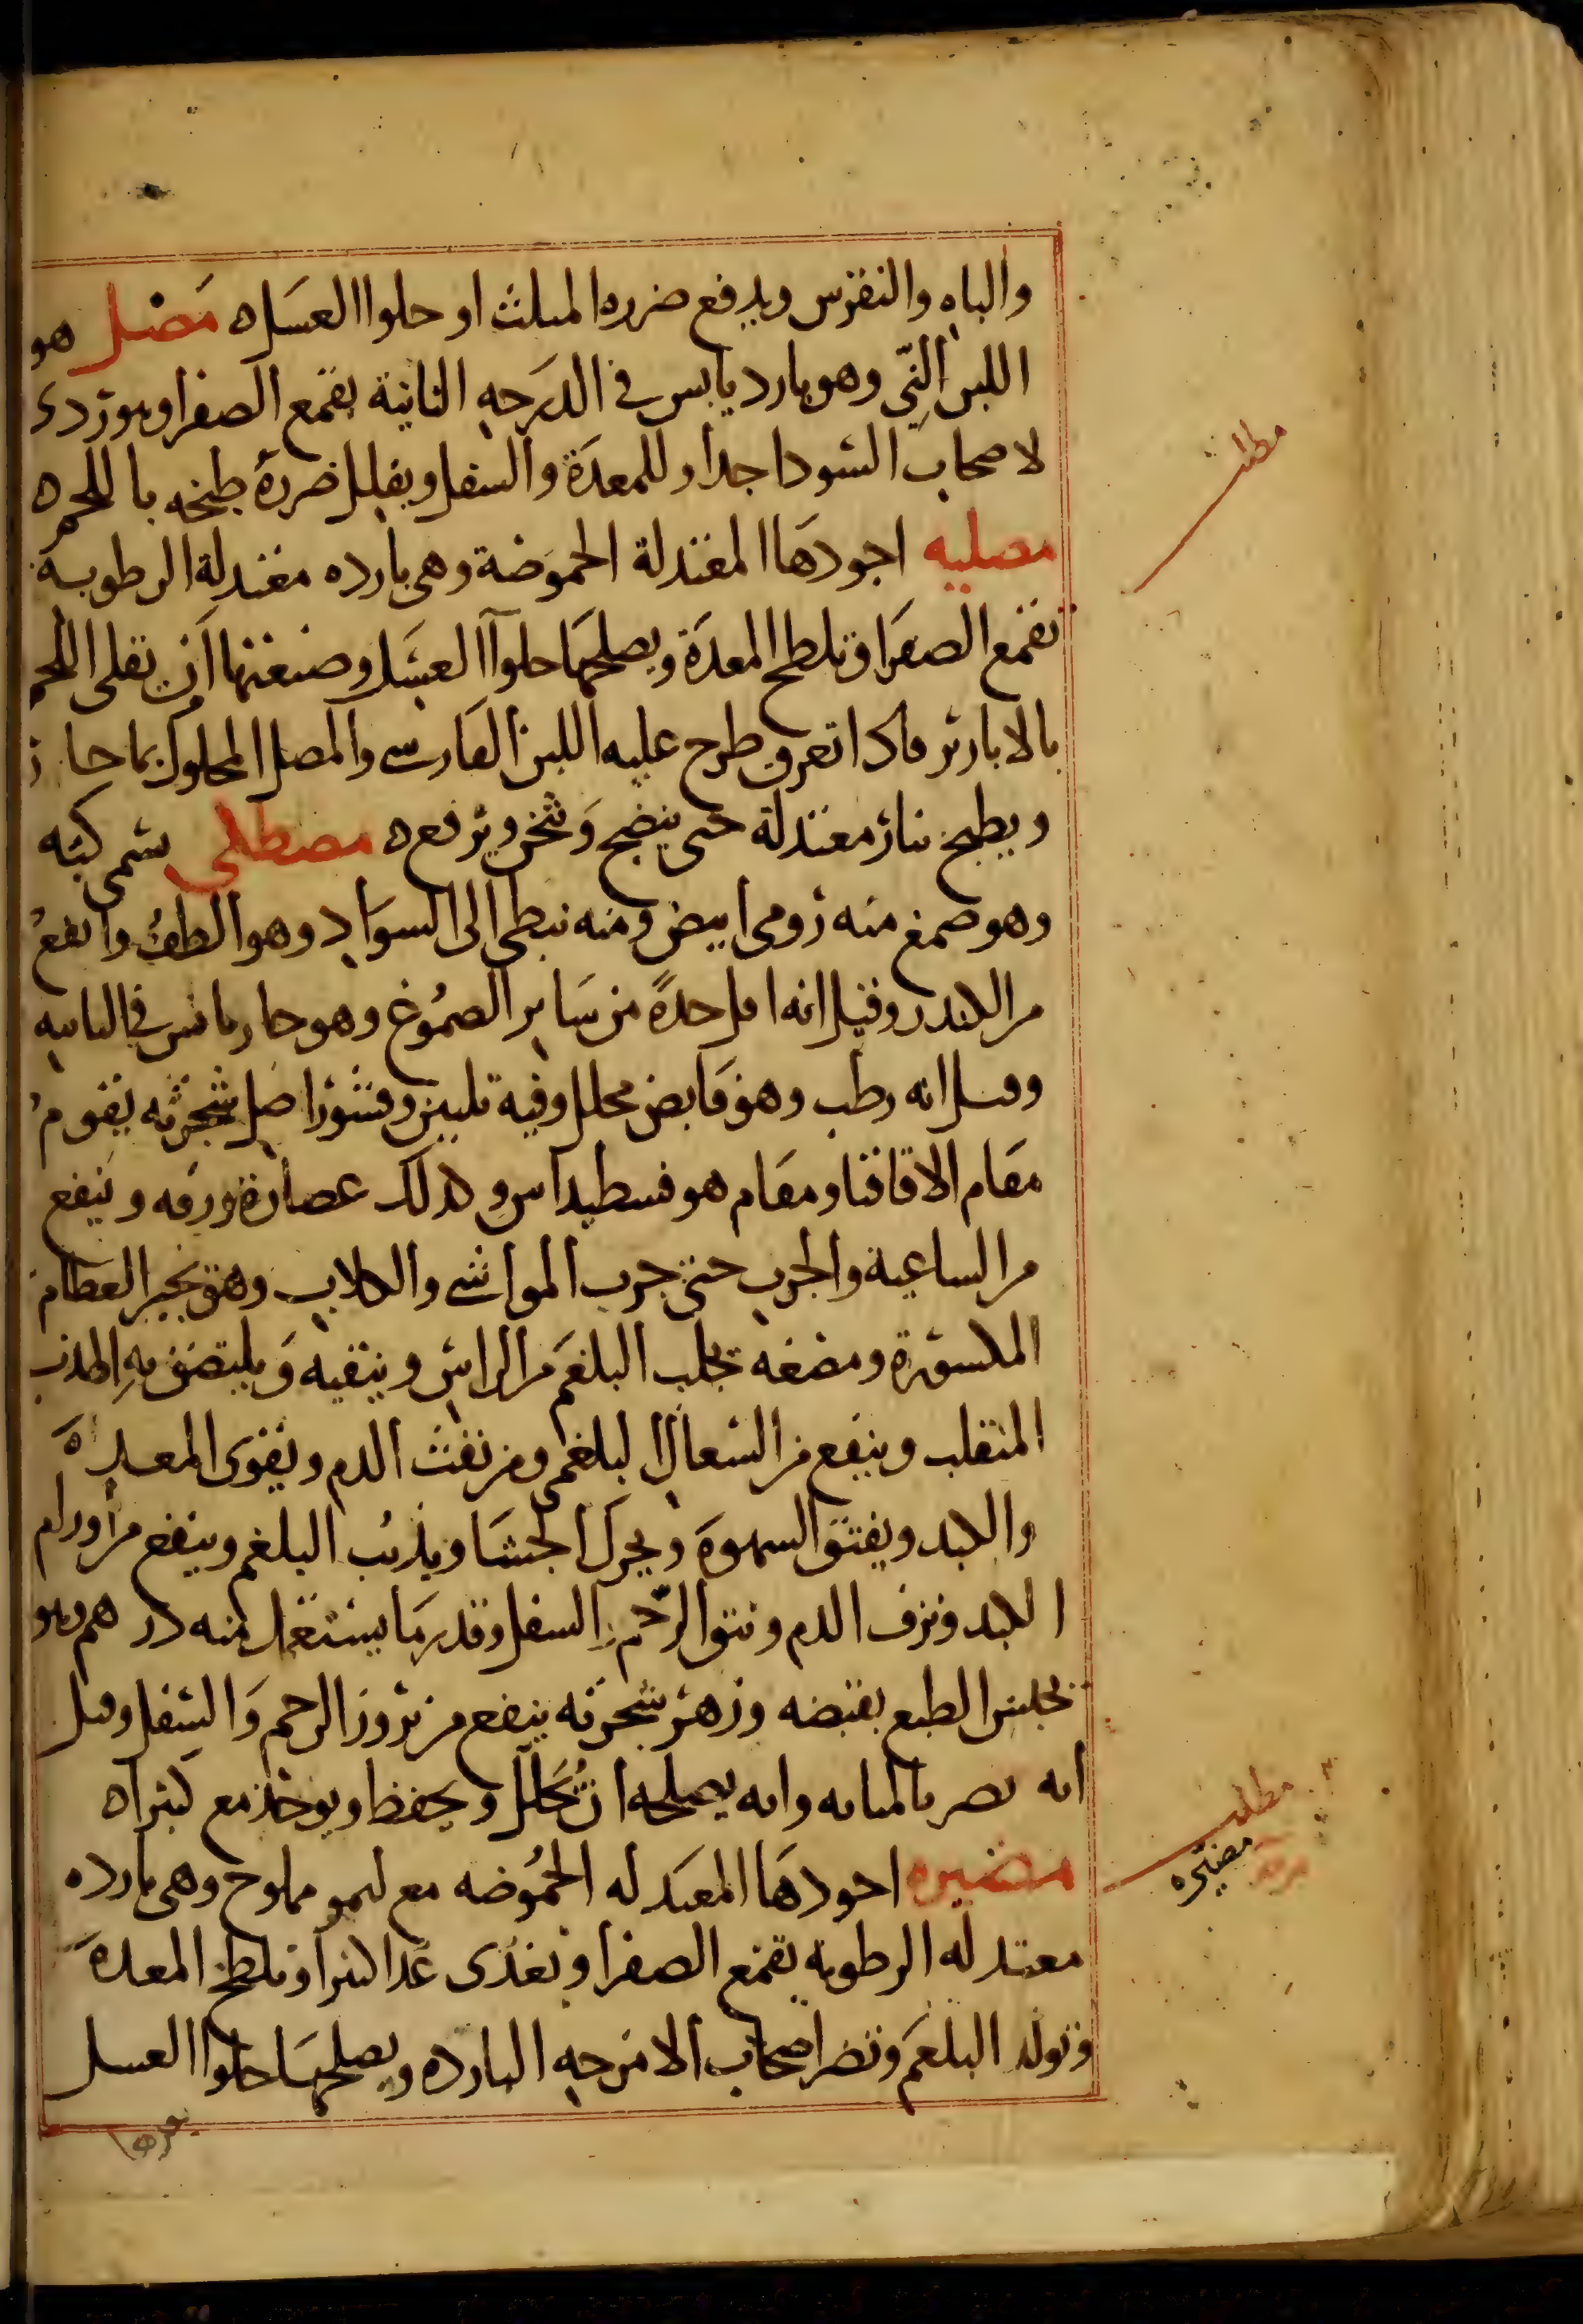 والباه والنقرس ويدفع ضرره المثلث او حلوا العسل ه مصل هو
اللبن النّي وهو بارد يابس في الدرجه الثانية يقمع الصفرا وهو ردي
لاصحاب السودا جدا وللمعدة والسفل ويقلل ضرره طبخه باللحم ه
مصليه اجودها المعتدلة الحموضة وهي بارده معتدلة الرطوبة
تقمع الصفرا وتلطخ المعدة ويصلحها حلوا العسل وصنعتها ان يقلى اللحم
بالابازير فاذا تعرق طرح عليه اللبن الفارسي والمصل المحلول بما حار
ويطبخ بنار معتدلة حتى ينضج وثخن ويرفع ه مصطكى يسمى كيه
وهو صمغ منه رومي ابيض ومنه نبطي الى السواد وهو الطف وانفع
من الكندر وقيل انه اقل حدة من ساير الصموغ وهو حار يابس في الثانيه
وقيل انه رطب وهو قابض محلل وفيه تليين وقشور اصل شجرته يقوم
مقام الاقاقيا ومقام هوفسطيداس وكذلك عصارة ورقه وينفع
من الساعية والجرب حتى جرب المواشي والكلاب وهو يجبر العظام
المكسورة ومضغه يجلب البلغم من الراس وينقيه ويلتصق به الهدب
المنقلب وينفع من السعال البلغمي ومن نفث الدم ويقوي المعدة
والكبد ويفتق الشهوة ويحرك الجشا ويذيب البلغم وينفع من اورام
الكبد ونزف الدم ونتو الرحم والسفل وقدر ما يستعمل منه درهم وهو
يحبس الطبع بقبضه وزهر شجرته ينفع من بروز الرحم والسفل وقيل
انه يضر بالمثانه وانه يصلحه ان يحلل ويجفف ويوخذ مع كثيرا ه
مضيره اجودها المعتدله الحموضه مع ليمو مملوح وهي بارده
معتدله الرطوبه تقمع الصفرا وتغذى غذا كثيرا وتلطخ المعده
وتولد البلغم وتضر اصحاب الامزجه البارده ويصلحها حلوا العسل
مطلب
مطلب
مضيره